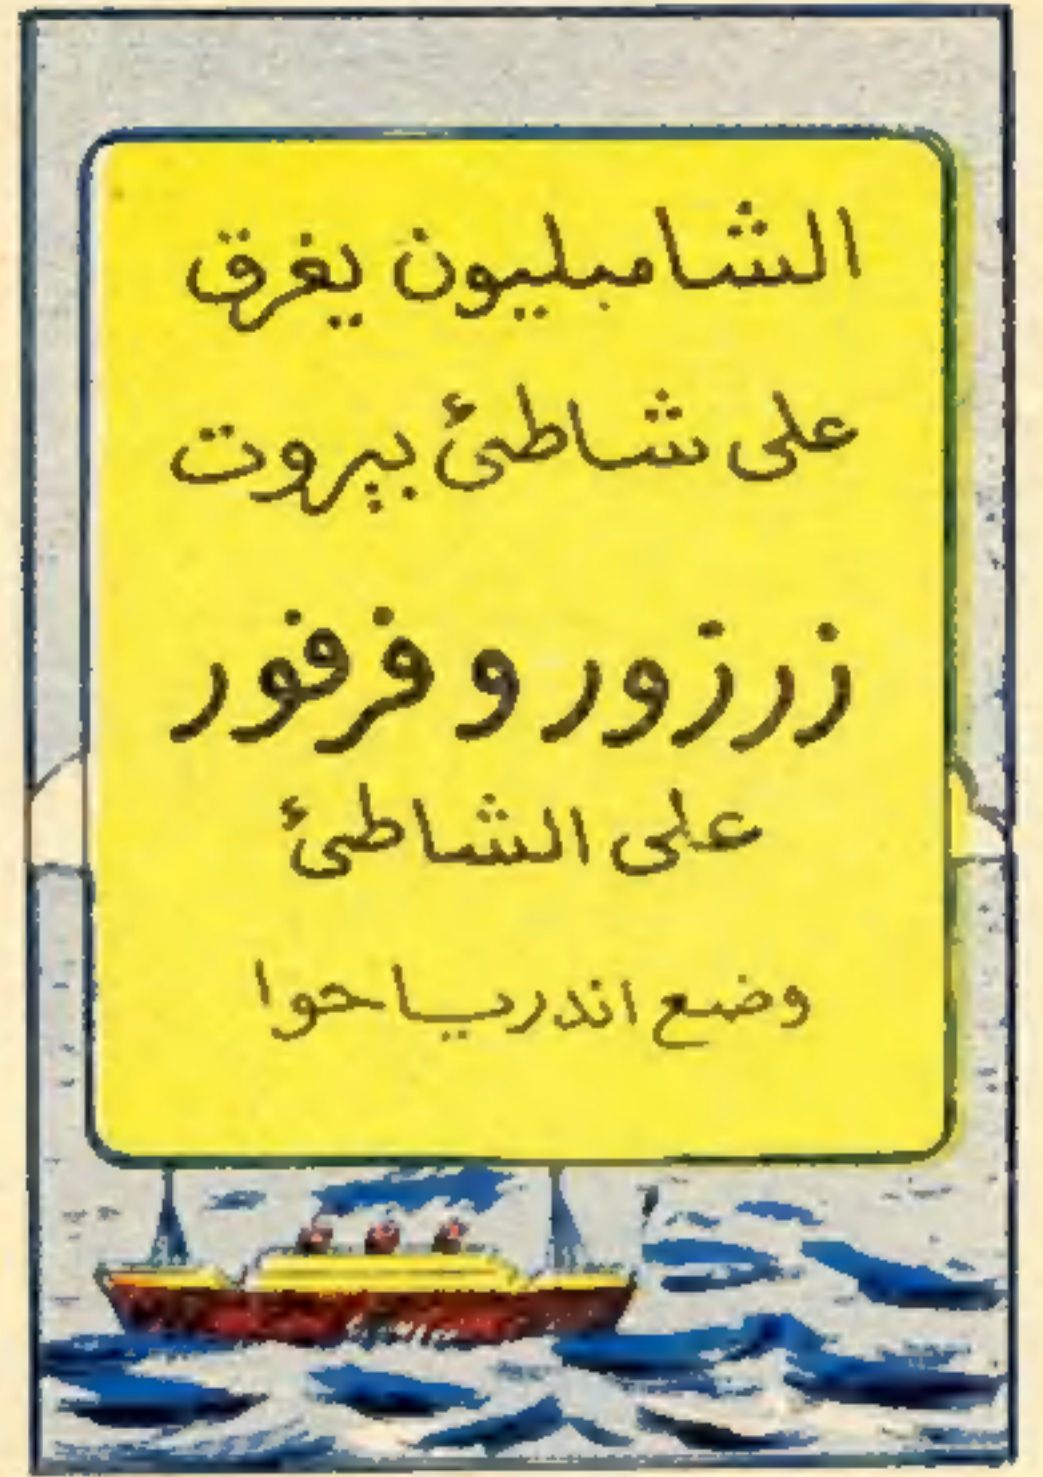 الشامبليون يغرق
على شاطئ بيروت
زرزور و فرفور
على الشاطئ
وضع اندريا حوا